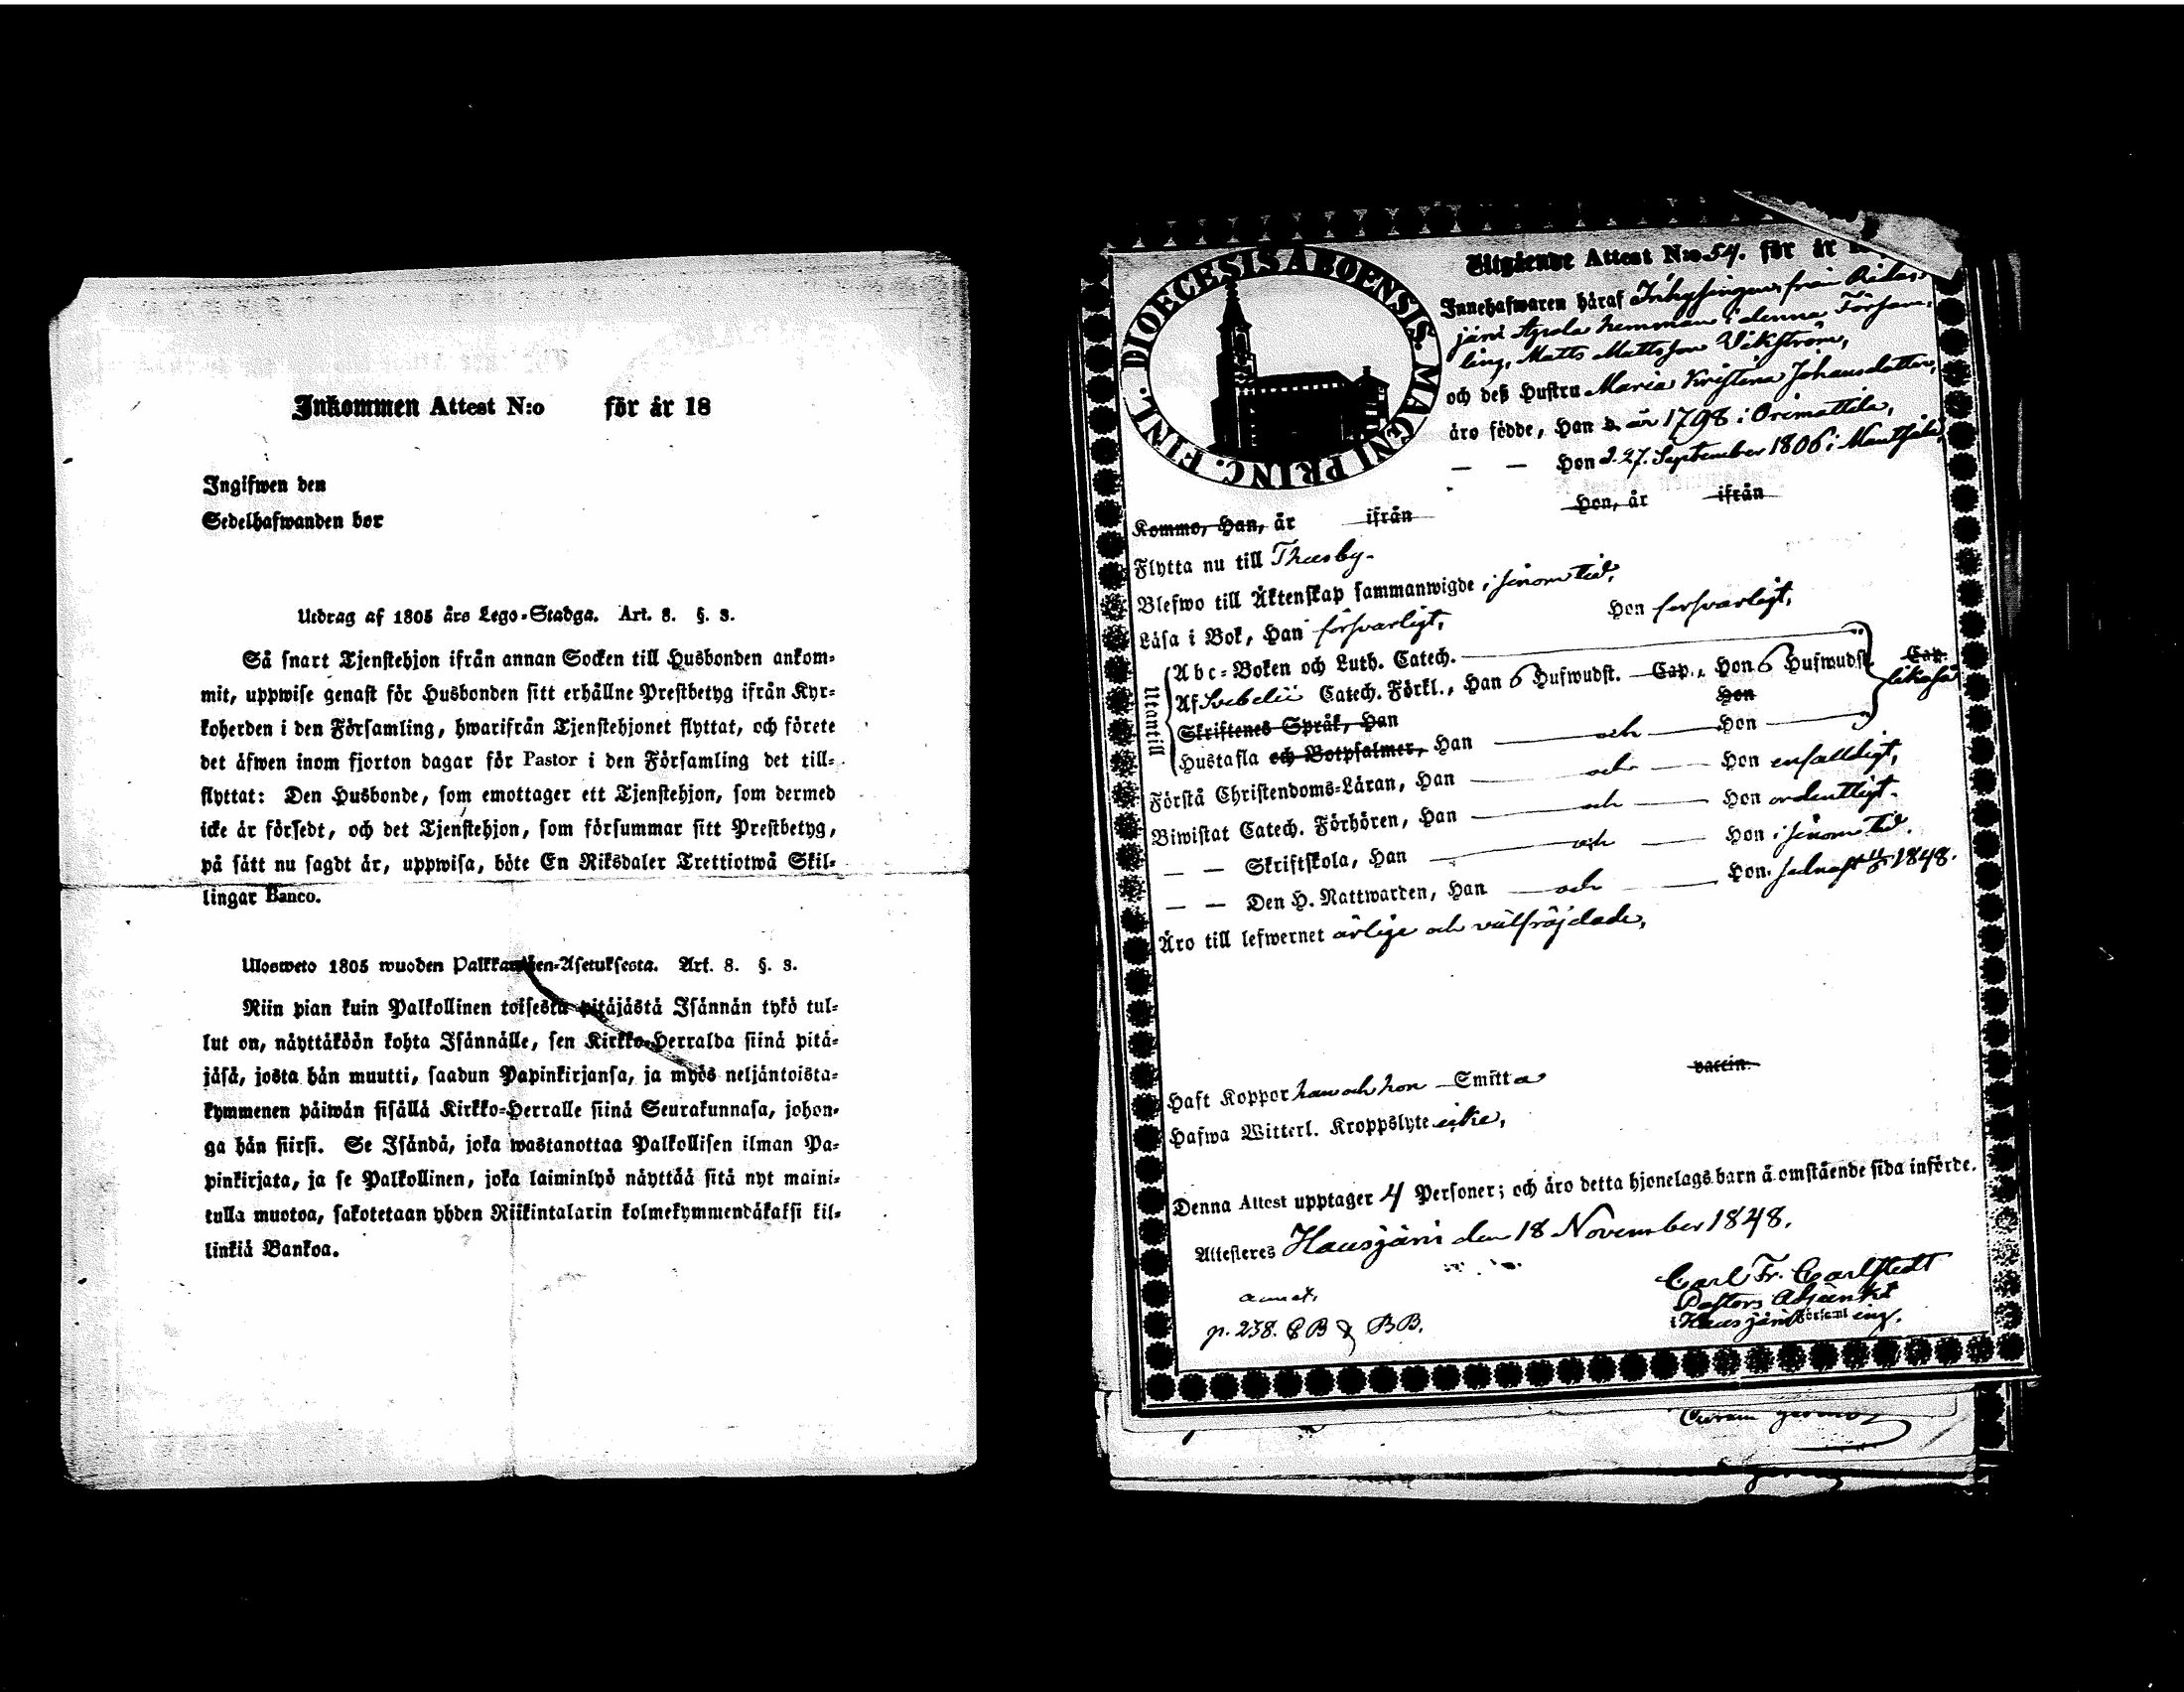 Inkommen Attest N:o för år 18
Ingifwen den
Sedelhafwanden bor
Utdrag af 1805 års Lego-Stadga. Art. 8. §. 3.
Så snart Tjenstehjon ifrån annan Socken till Husbonden ankom-
mit, uppwise genast för Husbonden sitt erhållne Prestbetyg ifrån Kyr-
koherden i den Församling, hwarifrån Tjenstehjonet flyttat, och förete
det äfwen inom fjorton dagar för Pastor i den Församling det till-
flyttat: Den Husbonde, som emottager ett Tjenstehjon, som dermed
icke är försedt, och det Tjenstehjon, som försummar sitt Prestbetyg,
på sätt nu sagdt är, uppwisa, böte En Riksdaler Trettiotwå Skil-
lingar Banco.
Ulosweto 1805 wuoden Palkkawäen-Asetuksesta. Art. 8. §. 3.
Niin pian kuin Palkollinen toisesta pitäjästä Isännän tykö tul-
lut on, näyttäköön kohta Isännälle, sen Kirkko-Herralda siinä pitä-
jäsä, josta hän muutti, saadun Papinkirjansa, ja myös neljäntoista-
kymmenen päiwän sisällä Kirkko-Herralle siinä Seurakunnasa, johon-
ga hän siirsi. Se Isändä, joka wastanottaa Palkollisen ilman Pa-
pinkirjata, ja se Palkollinen, joka laiminlyö näyttää sitä nyt maini-
tulla muotoa, sakotetaan yhden Riikintalarin kolmekymmendäkaksi kil-
linkiä Bankoa.
DIOECESIS ABOENSIS. MAGNI PRINC. FINL.
Utgående Attest N:o 54. för år
Innehafwaren häraf Inhysingen från
järvi hemman i denna Försam-
ling, Matts Mattsson Wikström,
och deß Hustru Maria Kristina Johansdotter,
äro födde, Han d. år 1798 i Orimattila,
— — Hon d. 27. September 1806 i Mäntsälä,
Kommo, Han, år ifrån Hon, år ifrån
Flytta nu till Thusby.
Blefwo till Äktenskap sammanwigde i sinom tid,
Läsa i Bok, Han försvarligt, Hon försvarligt,
Utantill
Abc-Boken och Luth. Catech.
Af Svebelii Catech. Förkl., Han 6 Hufwudst. Cap., Hon 6 Hufwudst. Cap.
likaså
Skriftenes Språk, Han Hon
Hustafla och Botpsalmer, Han och Hon
Förstå Christendoms-Läran, Han och Hon enfaldigt,
Biwistat Catech. Förhören, Han och Hon ordentligt.
— — Skriftskola, Han och Hon i sinom tid.
— — Den H. Nattwarden, Han och Hon sednast 1848.
Äro till lefwernet ärlige och välfräjdade,
Haft Koppor han och hon Smitta vaccin.
Hafwa Witterl. Kroppslyte icke,
Denna Attest upptager 4 Personer; och äro detta hjonelags barn å omstående sida införde.
Attesteres Hausjärvi den 18 November 1848.
Carl Fr. Carlstedt
Pastors Adjunkt
i Hausjärvi Församling.
p. 238. CB & BB.